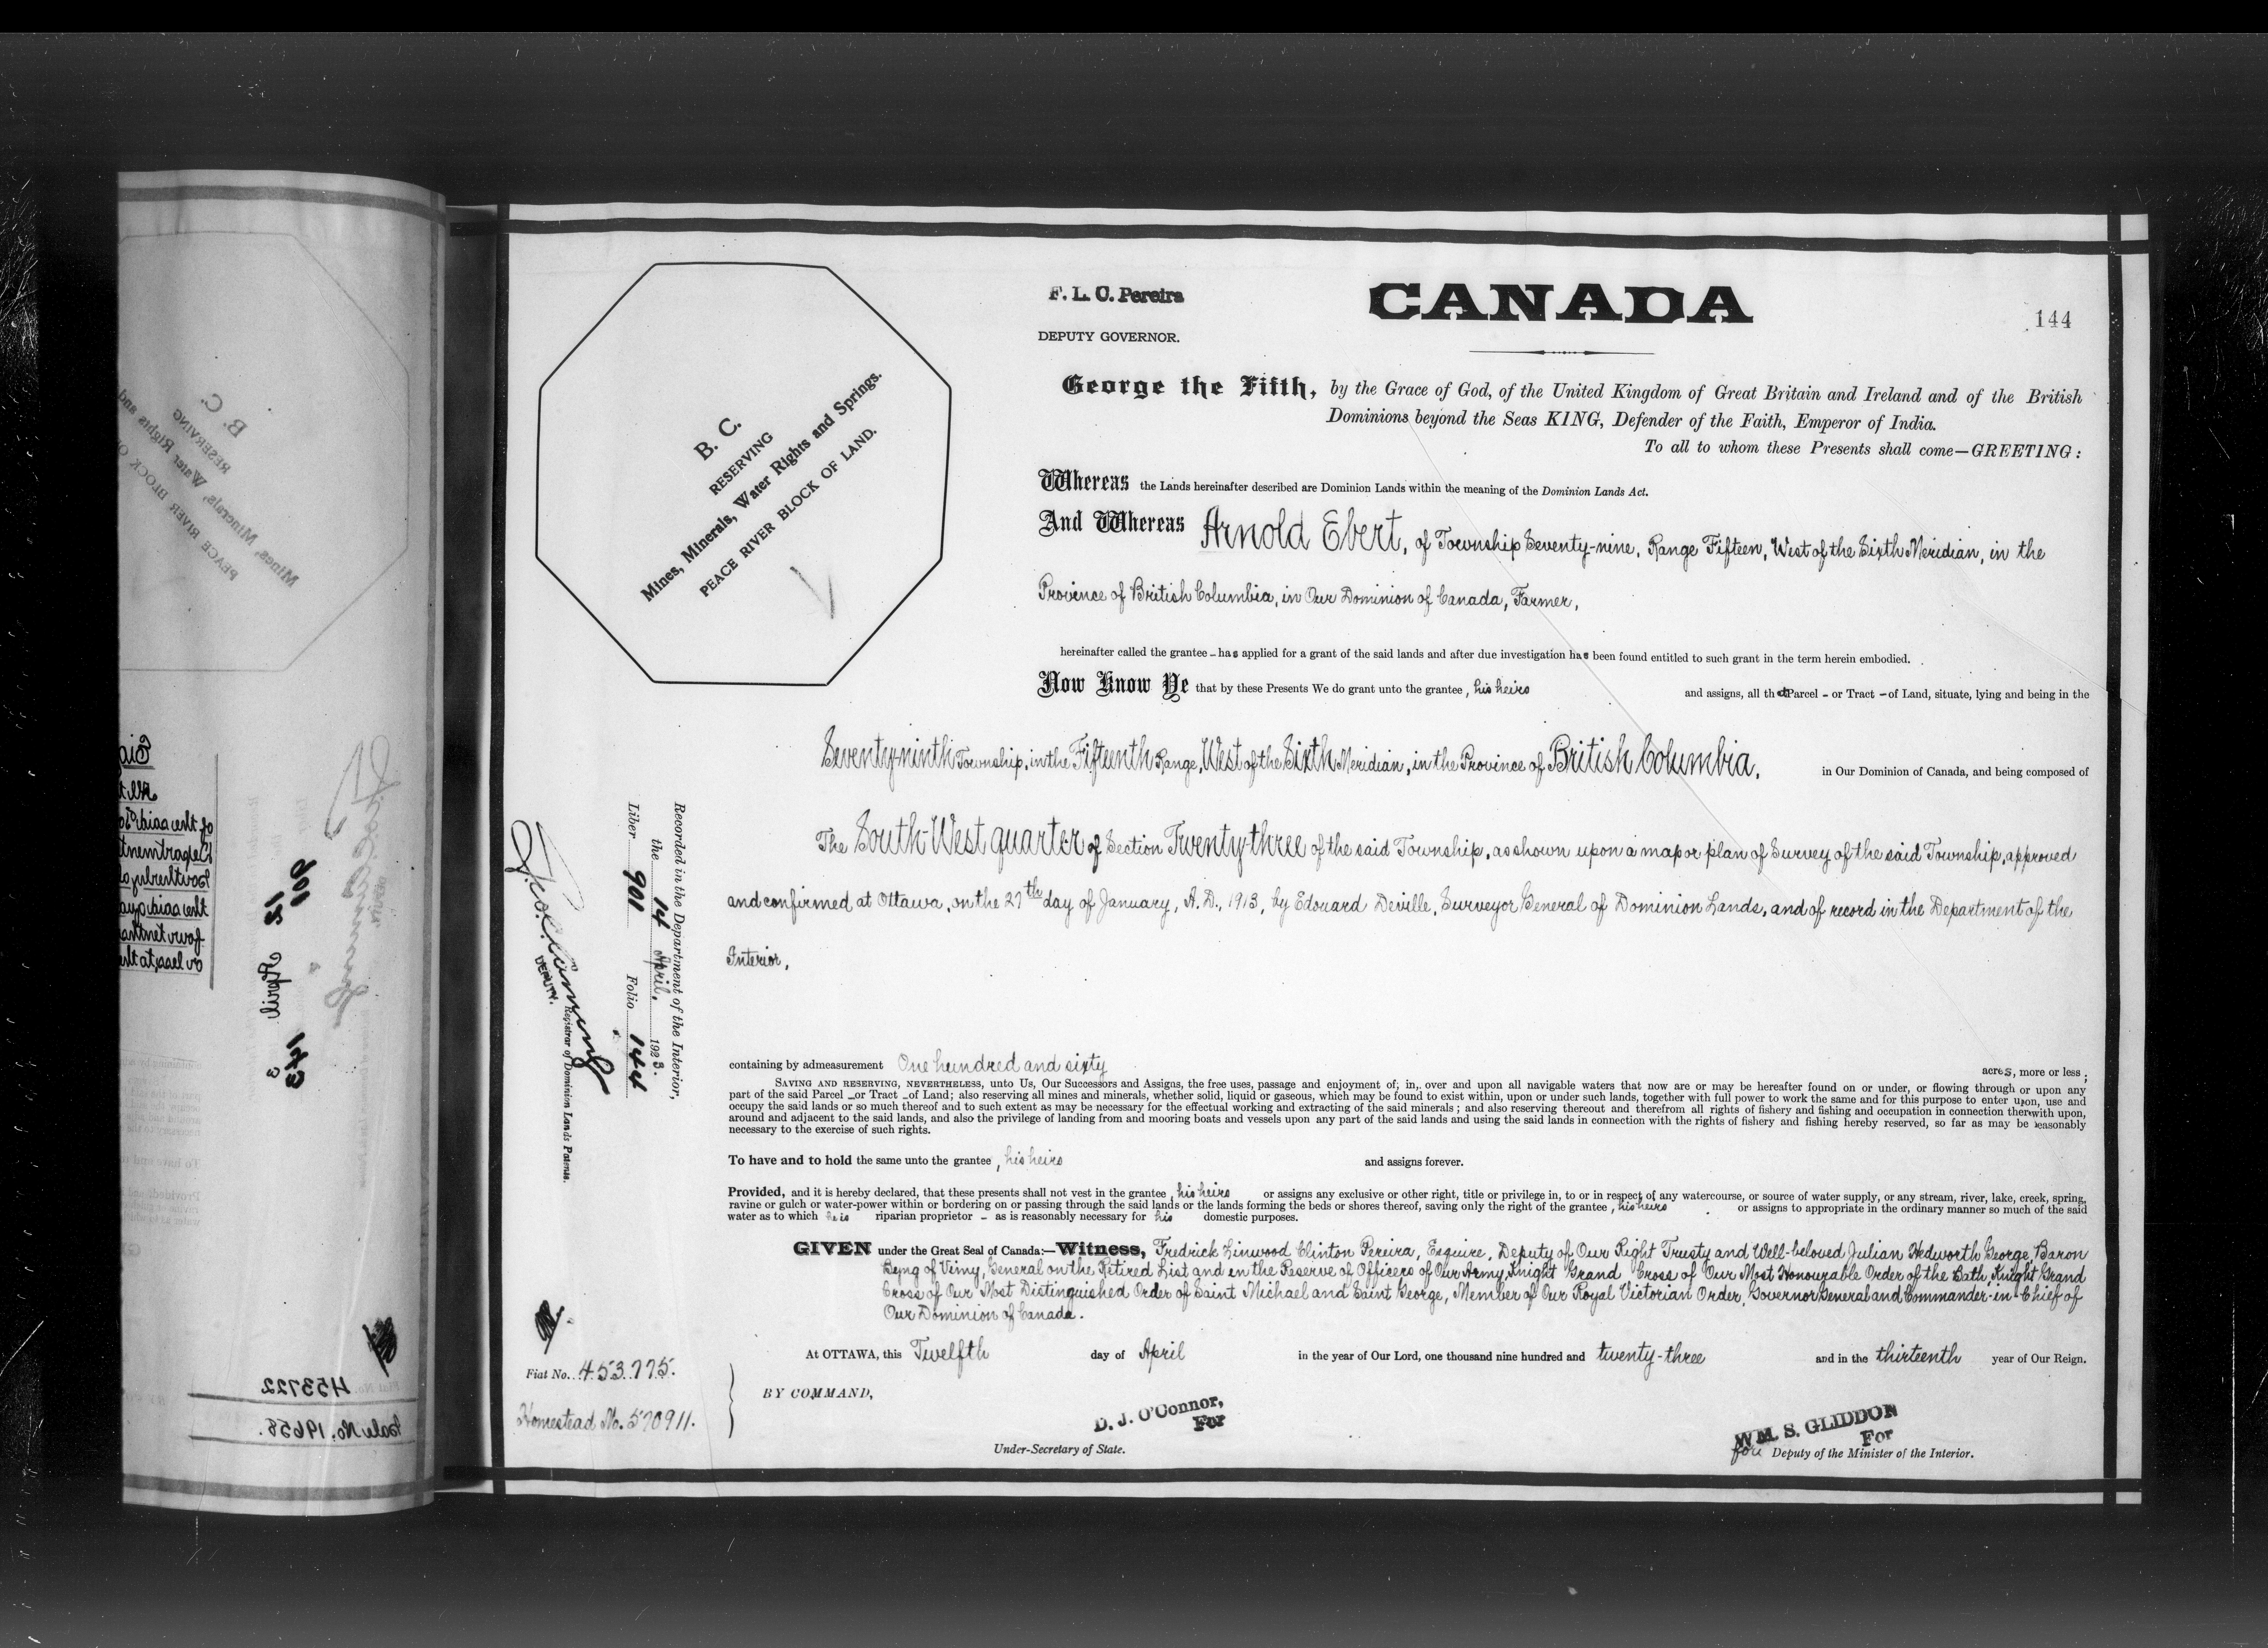 F. L. C. Pereira
DEPUTY GOVERNOR.
CANADA
144
B. C.
RESERVING
Mines, Minerals, Water Rights and Springs.
PEACE RIVER BLOCK OF LAND.
George the Fifth, by the Grace of God, of the United Kingdom of Great Britain and Ireland and of the British
Dominions beyond the Seas KING, Defender of the Faith, Emperor of India.
To all to whom these Presents shall come—GREETING:
Whereas the Lands hereinafter described are Dominion Lands within the meaning of the Dominion Lands Act.
And Whereas Arnold Ebert, of Township Seventy-nine, Range Fifteen, West of the Sixth Meridian, in the
Province of British Columbia, in Our Dominion of Canada, Farmer,
hereinafter called the grantee - has applied for a grant of the said lands and after due investigation has been found entitled to such grant in the term herein embodied.
Now Know Ye that by these Presents We do grant unto the grantee, his heirs and assigns, all that Parcel - or Tract - of Land, situate, lying and being in the
Seventy-ninth Township, in the Fifteenth Range, West of the Sixth Meridian, in the Province of British Columbia, in Our Dominion of Canada, and being composed of
The South-West quarter of Section Twenty-three of the said Township, as shown upon a map or plan of Survey of the said Township, approved
and confirmed at Ottawa, on the 27th day of January, A.D., 1913, by Edouard Deville, Surveyor General of Dominion Lands, and of record in the Department of the
Interior,
containing by admeasurement One hundred and sixty acres, more or less;
SAVING AND RESERVING, NEVERTHELESS, unto Us, Our Successors and Assigns, the free uses, passage and enjoyment of, in, over and upon all navigable waters that now are or may be hereafter found on or under, or flowing through or upon any
part of the said Parcel - or Tract - of Land; also reserving all mines and minerals, whether solid, liquid or gaseous, which may be found to exist within, upon or under such lands, together with full power to work the same and for this purpose to enter upon, use and
occupy the said lands or so much thereof and to such extent as may be necessary for the effectual working and extracting of the said minerals; and also reserving thereout and therefrom all rights of fishery and fishing and occupation in connection therewith upon,
around and adjacent to the said lands, and also the privilege of landing from and mooring boats and vessels upon any part of the said lands and using the said lands in connection with the rights of fishery and fishing hereby reserved, so far as may be reasonably
necessary to the exercise of such rights.
To have and to hold the same unto the grantee, his heirs and assigns forever.
Provided, and it is hereby declared, that these presents shall not vest in the grantee, his heirs or assigns any exclusive or other right, title or privilege in, to or in respect of any watercourse, or source of water supply, or any stream, river, lake, creek, spring,
ravine or gulch or water-power within or bordering on or passing through the said lands or the lands forming the beds or shores thereof, saving only the right of the grantee, his heirs or assigns to appropriate in the ordinary manner so much of the said
water as to which he is riparian proprietor - as is reasonably necessary for his domestic purposes.
GIVEN under the Great Seal of Canada:—Witness, Fredrick Linwood Clinton Pereira, Esquire, Deputy of Our Right Trusty and Well-beloved Julian Hedworth George, Baron
Byng of Vimy, General on the Retired List and in the Reserve of Officers of Our Army, Knight Grand Cross of Our Most Honourable Order of the Bath, Knight Grand
Cross of Our Most Distinguished Order of Saint Michael and Saint George, Member of Our Royal Victorian Order, Governor General and Commander-in-Chief of
Our Dominion of Canada.
At OTTAWA, this Twelfth day of April in the year of Our Lord, one thousand nine hundred and twenty-three and in the thirteenth year of Our Reign.
BY COMMAND,
D. J. O'Connor,
For
Under-Secretary of State.
WM. S. GLIDDON
For
for Deputy of the Minister of the Interior.
Recorded in the Department of the Interior,
the 14 April, 1923.
Liber 901 Folio 144
DEPUTY.
Registrar of Dominion Lands Patents.
Fiat No. 453775.
Homestead No. 570911.
B. C.
RESERVING
PEACE RIVER BLOCK
901
12 April 3
143
453722
Sale No. 19658.